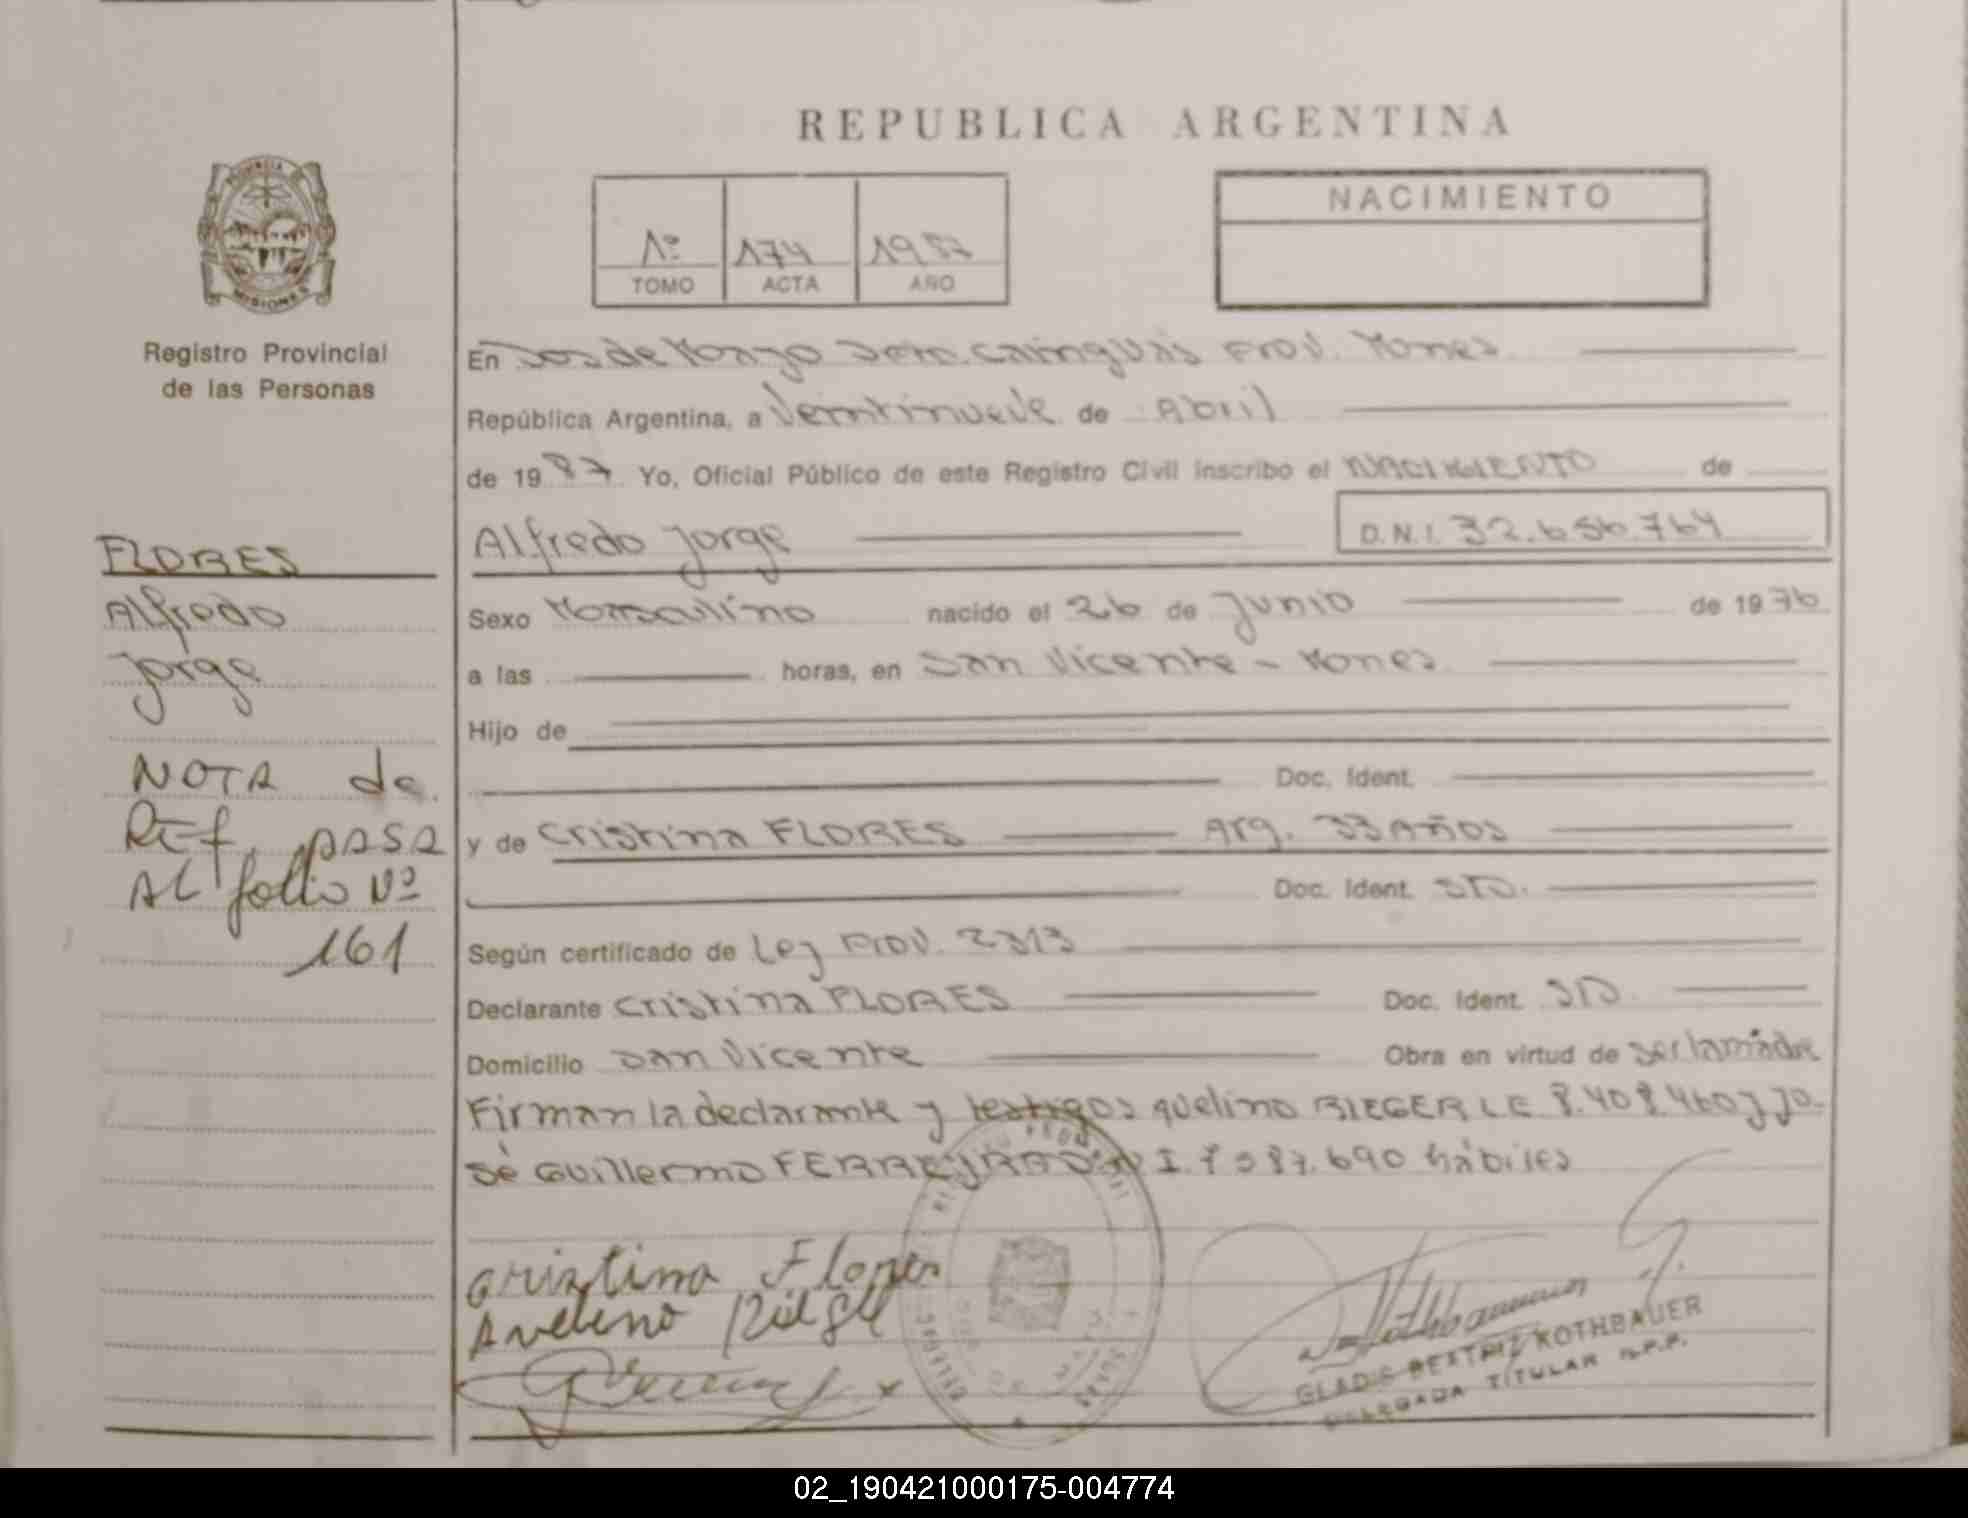 REPUBLICA ARGENTINA
PROVINCIA
MISIONES
Registro Provincial
de las Personas
1º 174 1987
TOMO ACTA AÑO
NACIMIENTO
En Dos de Marzo Dpto. Cainguás Prov. Mones
República Argentina, a Veintinueve de Abril
de 1987 Yo, Oficial Público de este Registro Civil inscribo el NACIMIENTO de
Alfredo Jorge D.N.I. 32.656.764
FLORES
Alfredo
Jorge
NOTA de
REf. PASA
AL folio Nº
161
Sexo Masculino nacido el 26 de Junio de 1976
a las horas, en San Vicente - Mones
Hijo de
Doc. Ident.
y de Cristina FLORES Arg. 33 Años
Doc. Ident. S/D.
Según certificado de Ley Prov. 2313
Declarante Cristina FLORES Doc. Ident. S/D
Domicilio San Vicente Obra en virtud de ser la madre
Firman la declarante y testigos quelino RIEGER LE 8.408.460 y Jo-
sé Guillermo FERREYRA D.N.I. 7.587.690 hábiles
Cristina Flores
Avelino
GLADIS BEATRIZ KOTHBAUER
DELEGADA TITULAR R.P.P.
02_190421000175-004774